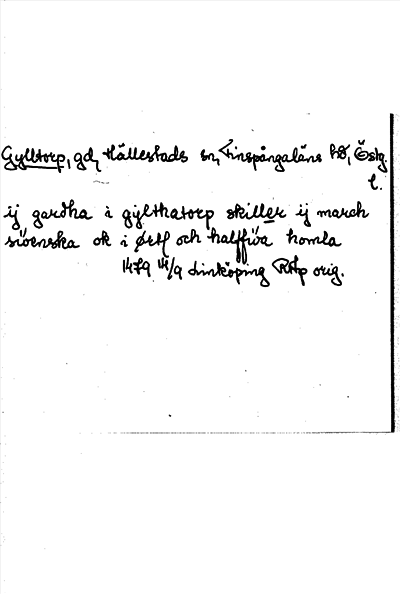 Gylltorp, gd, Hällestads sn, Finspångaläns hd, Östg.
l.
ij gardha i gylthatorp skiller ij march
swenska ok i ørtl och halffwa homla
1479 14/9 Linköping RAp orig.